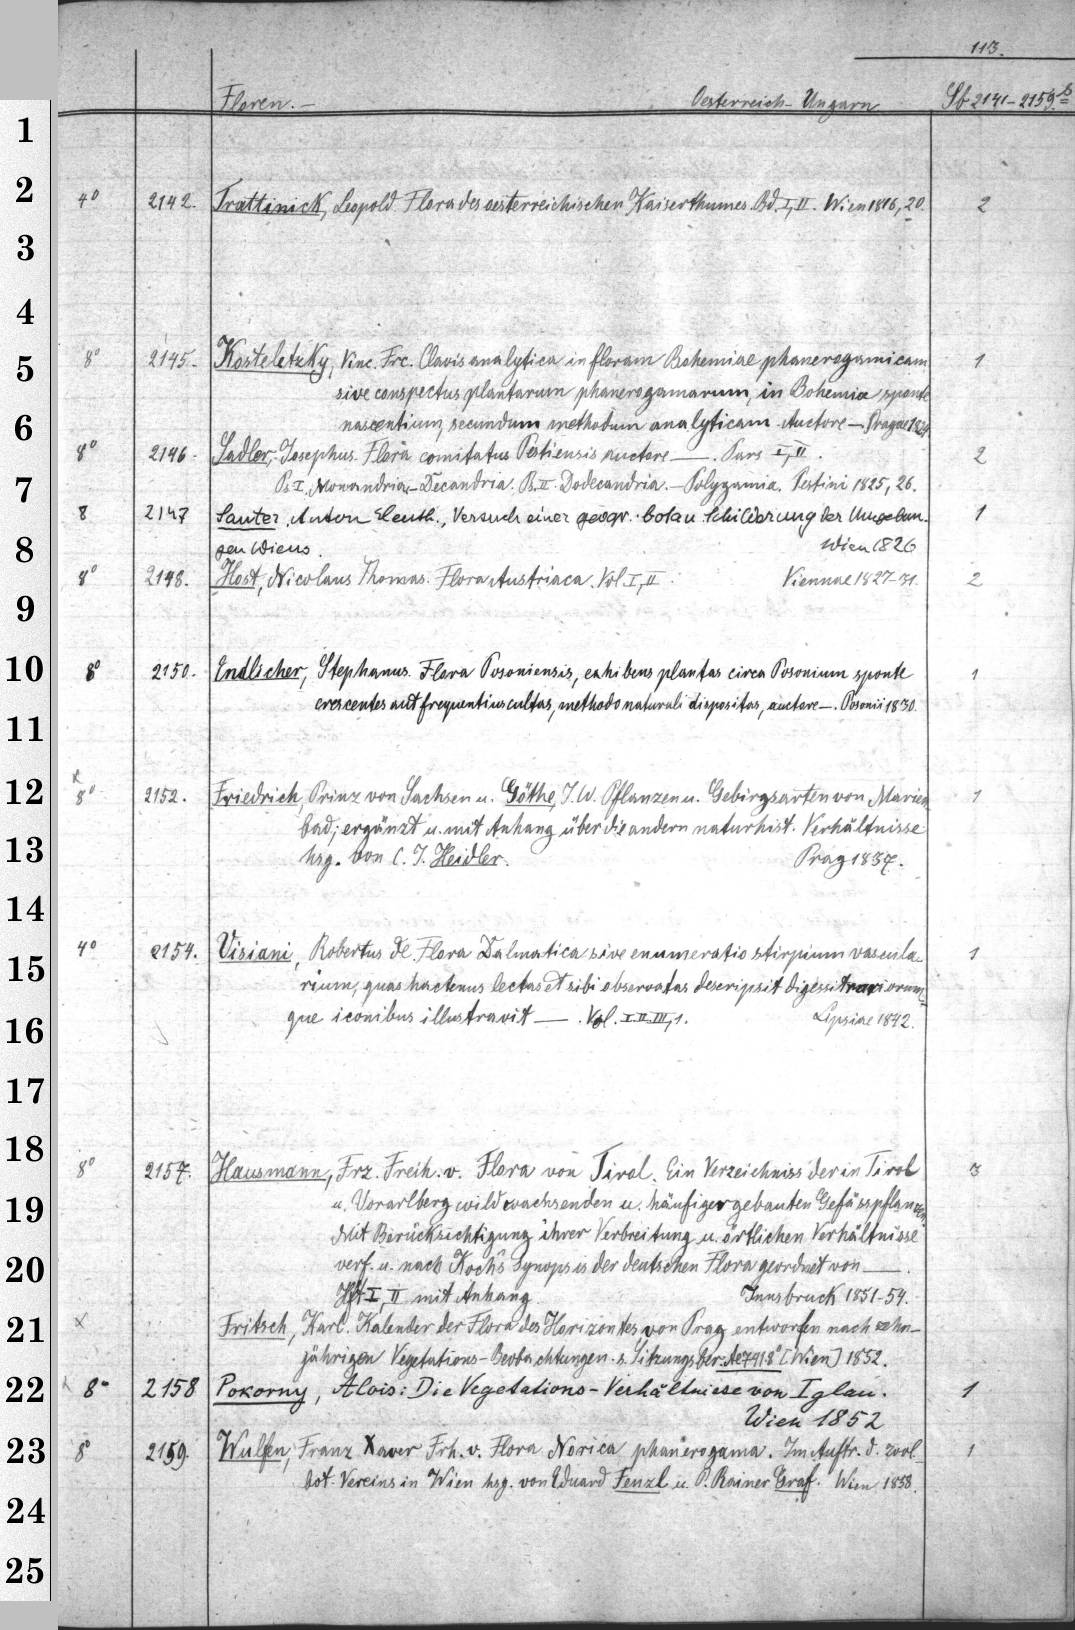 113.
Floren. — Oesterreich-Ungarn Sb 2141-2159 b
1
2
3
4
5
6
7
8
9
10
11
12
13
14
15
16
17
18
19
20
21
22
23
24
25
4° 2142. Trattinick, Leopold. Flora des oesterreichischen Kaiserthumes. Bd. I, II. Wien 1816, 20. 2
8° 2145. Kosteletzky, Vinc. Frc. Clavis analytica in floram Bohemiae phanerogamicam 1
sive conspectus plantarum phanerogamarum, in Bohemia sponte
nascentium, secundum methodum analyticam. Auctore — Pragae 1824
8° 2146. Sadler, Josephus. Flora comitatus Pestiensis auctore —. Pars I, II. 2
Ps. I. Monandria-Decandria. Ps. II. Dodecandria.-Polygamia. Pestini 1825, 26.
8 2147 Sauter, Anton Eleuth., Versuch einer geogr. botan Schilderung der Umgebun- 1
gen Wiens. Wien 1826
8° 2148. Host, Nicolaus Thomas. Flora Austriaca. Vol I, II. Viennae 1827-31. 2
8° 2150. Endlicher, Stephanus. Flora Posoniensis, exhibens plantas circa Posonium sponte 1
crescentes aut frequentius cultas, methodo naturali dispositas, auctore —. Posonii 1830.
x
8° 2152. Friedrich, Prinz von Sachsen u. Göthe, J. W. Pflanzen u. Gebirgsarten von Marien- 1
bad, ergänzt u. mit Anhang über die andern naturhist. Verhältnisse
hsg. von C. J. Heidler. Prag 1837.
4° 2154. Visiani, Robertus de. Flora Dalmatica sive enumeratio stirpium vascula- 1
rium, quas hactenus lectas et sibi observatas descripsit digessit rariorum-
que iconibus illustravit —. Vol. I. II. III, 1. Lipsiae 1842.
8° 2157. Hausmann, Frz. Freih. v. Flora von Tirol. Ein Verzeichniss der in Tirol 3
u. Vorarlberg wild wachsenden u. häufiger gebauten Gefässpflanzen.
Mit Berücksichtigung ihrer Verbreitung u. örtlichen Verhältnisse
verf. u. nach Koch's Synopsis der deutschen Flora geordnet von —.
Hft I, II mit Anhang. Innsbruck 1851-54.
x Fritsch, Karl. Kalender der Flora des Horizontes von Prag entworfen nach zehn-
jährigen Vegetations-Beobachtungen. s. Sitzungsber. Ae 741 8° [Wien] 1852.
x 8° 2158 Pokorny, Alois: Die Vegetations-Verhältniese von Iglau. 1
Wien 1852
8° 2159. Wulfen, Franz Xaver Frh. v. Flora Norica phanerogama. Im Auftr. d. zool. 1
bot. Vereins in Wien hsg. von Eduard Fenzl u. P. Rainer Graf. Wien 1858.